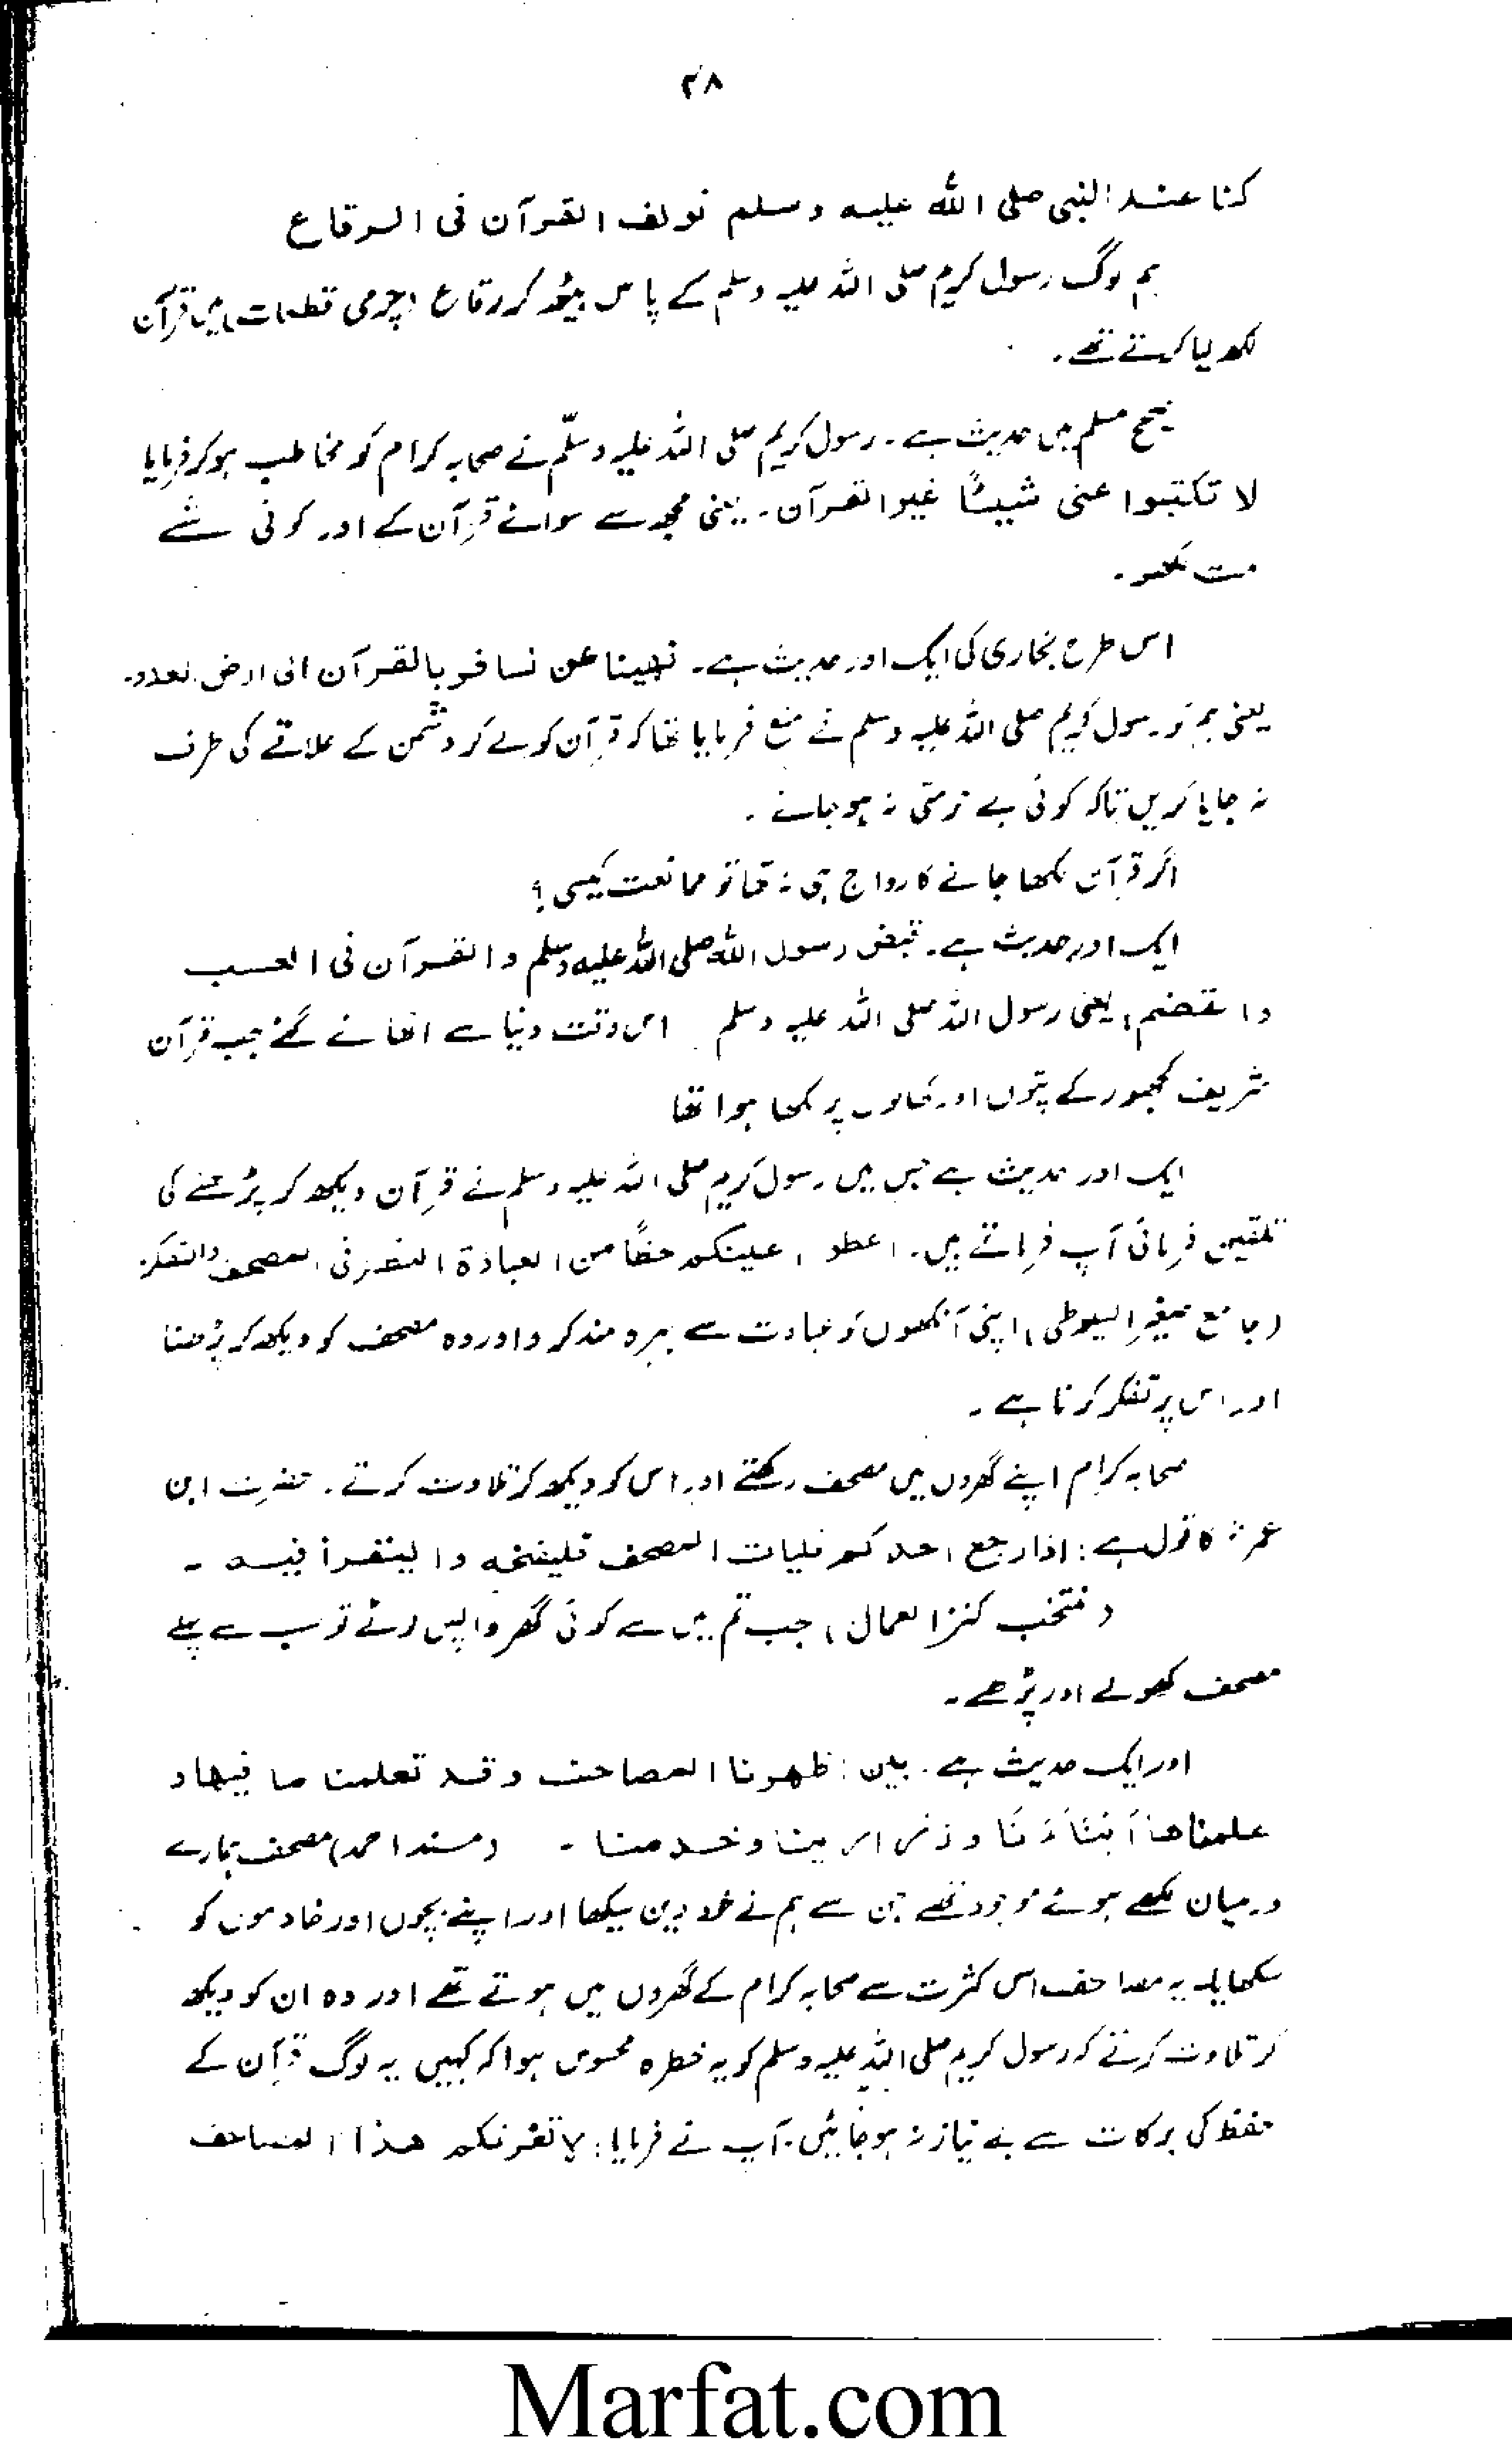 ۲۸
کنا عند النبی صلی اللہ علیہ وسلم نولف القرآن فی الرقاع
ہم لوگ رسول کریم صلی اللہ علیہ وسلم کے پاس بیٹھ کر رقاع (چرمی قطعات) میں قرآن
لکھ لیا کرتے تھے۔
صحیح مسلم میں حدیث ہے۔ رسول کریم صلی اللہ علیہ وسلّم نے صحابہ کرام کو مخاطب ہو کر فرمایا
لا تکتبوا عنی شیئًا غیر القرآن۔ یعنی مجھ سے سوائے قرآن کے اور کوئی شے
مت لکھو۔
اس طرح بخاری کی ایک اور حدیث ہے۔ نہینا عن نسافر بالقرآن الی ارض العدو۔
یعنی ہم کو رسول کریم صلی اللہ علیہ وسلم نے منع فرمایا تھا کہ قرآن کو لے کر دشمن کے علاقے کی طرف
نہ جایا کریں تاکہ کوئی بے حرمتی نہ ہو جائے۔
اگر قرآن لکھا جانے کا رواج ہی نہ تھا تو ممانعت کیسی؟
ایک اور حدیث ہے۔ قبض رسول اللہ صلی اللہ علیہ وسلم والقرآن فی العسب
والقضم، یعنی رسول اللہ صلی اللہ علیہ وسلم اس وقت دنیا سے اٹھائے گئے جب قرآن
شریف کھجور کے پتوں اور کھالوں پر لکھا ہوا تھا
ایک اور حدیث ہے جس میں رسول کریم صلی اللہ علیہ وسلم نے قرآن دیکھ کر پڑھنے کی
تلقین فرمائی آپ فرماتے ہیں۔ اعطوا علینکم حظًا من العبادۃ النظر فی المصحف والتفکر
(جامع صغیر السیوطی) اپنی آنکھوں کو عبادت سے بہرہ مند کرو اور وہ مصحف کو دیکھ کر پڑھنا
اور اس پر تفکر کرنا ہے۔
صحابہ کرام اپنے گھروں میں مصحف رکھتے اور اس کو دیکھ کر تلاوت کرتے۔ حضرت ابن
عمرؓ کا قول ہے: اذا رجع احدکم فلیات المصحف فلیفتحہ والیقرأ فیہ ۔
(منتخب کنز العمال) جب تم میں سے کوئی گھر واپس لوٹے تو سب سے پہلے
مصحف کھولے اور پڑھے۔
اور ایک حدیث ہے۔ بین ظہرنا المصاحف وقد تعلمنا ما فیہا و
علمناھا أبناءنا و ذرارینا وخدمنا ۔ (مسند احمد) مصحف ہمارے
درمیان لکھے ہوئے موجود تھے جن سے ہم نے خود دین سیکھا اور اپنے بچوں اور خادموں کو
سکھایا۔ یہ مصاحف اس کثرت سے صحابہ کرام کے گھروں میں ہوتے تھے اور وہ ان کو دیکھ
کر تلاوت کرتے کہ رسول کریم صلی اللہ علیہ وسلم کو یہ خطرہ محسوس ہوا کہ کہیں یہ لوگ قرآن کے
حفظ کی برکات سے بے نیاز نہ ہو جائیں۔ آپ نے فرمایا: لا تغرنکم ھذا المصاحف
Marfat.com